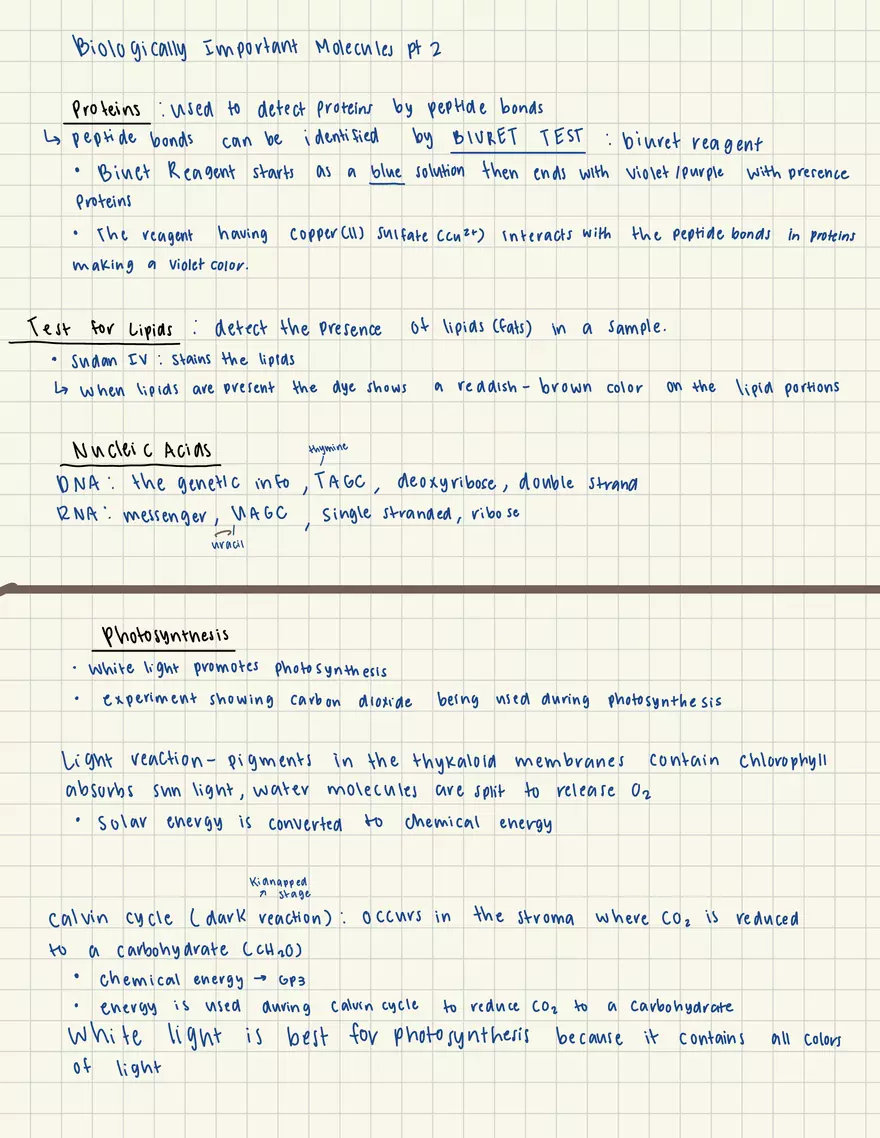 Biologically Important Molecules pt 2
Proteins : used to detect proteins by peptide bonds
↳ peptide bonds can be identified by BIURET TEST : biuret reagent
• Biuet Reagent starts as a blue solution then ends with violet/purple with presence
proteins
• The reagent having copper(II) sulfate (Cu²⁺) interacts with the peptide bonds in proteins
making a violet color.
Test for Lipids : detect the presence of lipids (fats) in a sample.
• Sudan IV : stains the lipids
↳ when lipids are present the dye shows a reddish-brown color on the lipid portions
Nucleic Acids
thymine
DNA : the genetic info , TAGC , deoxyribose, double strand
RNA : messenger , UAGC , single stranded, ribose
uracil
Photosynthesis
• white light promotes photosynthesis
• experiment showing carbon dioxide being used during photosynthesis
Light reaction- pigments in the thykaloid membranes contain chlorophyll
absorbs sun light, water molecules are split to release O₂
• Solar energy is converted to chemical energy
Kidnapped
↗ stage
Calvin cycle (dark reaction) : occurs in the stroma where CO₂ is reduced
to a carbohydrate (CH₂O)
• chemical energy → GP3
• energy is used during calvin cycle to reduce CO₂ to a carbohydrate
White light is best for photosynthesis because it contains all colors
of light